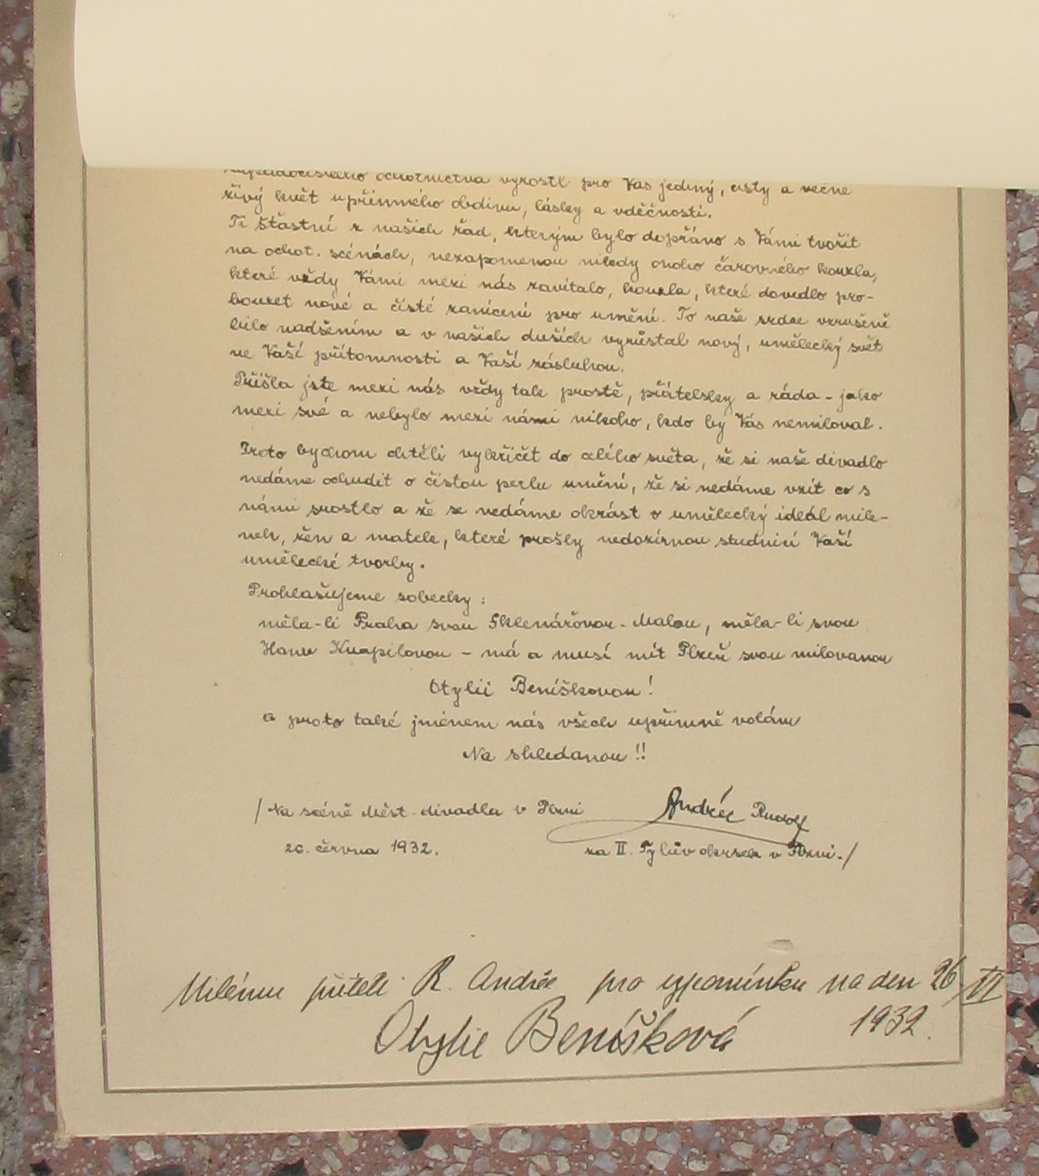 ochotnictva vyrostl pro Vás jediný, čistý a věčně
živý květ upřímného obdivu, lásky a vděčnosti.
Ti šťastní z našich řad, kterým bylo dopřáno s Vámi tvořit
na ochot. scénách, nezapomenou nikdy onoho čarovného kouzla,
které vždy Vámi mezi nás zavítalo, kouzla, které dovedlo pro-
bouzet nové a čisté zanícení pro umění. To naše srdce vzrušeně
bilo nadšením a v našich duších vyrůstal nový, umělecký svět
ve Vaší přítomnosti a Vaší zásluhou.
Přišla jste mezi nás vždy tak prostě, přátelsky a ráda - jako
mezi své a nebylo mezi námi nikoho, kdo by Vás nemiloval.
Proto bychom chtěli vykřičet do celého světa, že si naše divadlo
nedáme ochudit o čistou perlu umění, že si nedáme vzít co s
námi srostlo a že se nedáme okrást o umělecký ideál mile-
nek, žen a matek, které prošly nedozírnou studnicí Vaší
umělecké tvorby.
Prohlašujeme sobecky:
měla-li Praha svou Sklenářovou-Malou, měla-li svou
Hanu Kvapilovou - má a musí mít Plzeň svou milovanou
Otylii Beníškovou!
a proto také jménem nás všech upřímně volám
Na shledanou!!
/Na scéně Měst. divadla v Plzni
Andrée Rudolf
26. června 1932.
za II. Tylův okrsek v Plzni./
Milému příteli R. Andrée pro vzpomínku na den 26/VI
1932.
Otylie Beníšková